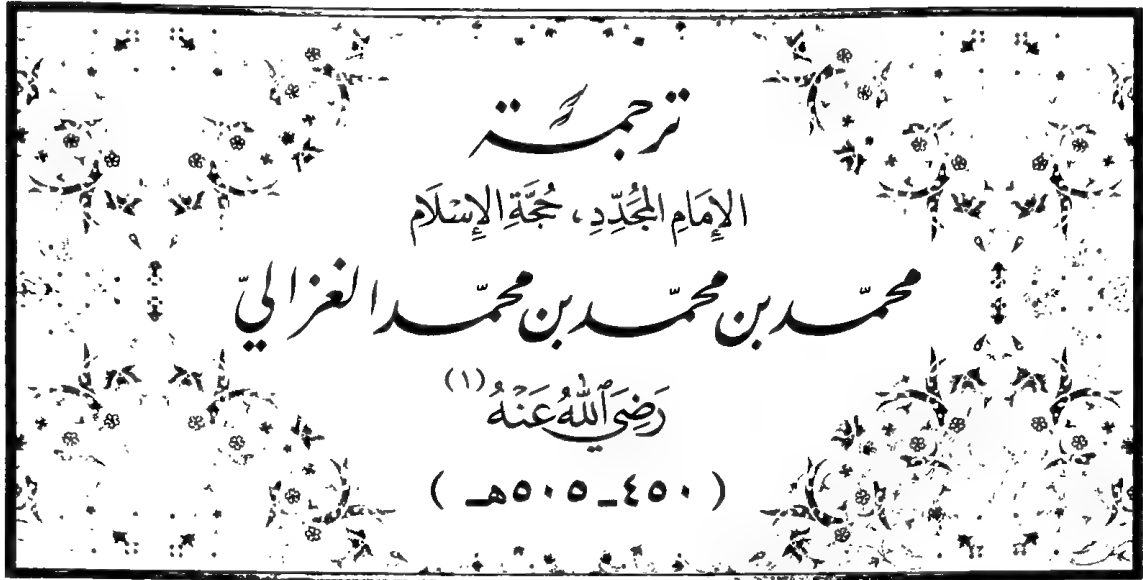 ترجمة
الإِمَامِ المُجَدِّدِ، حُجَّةِ الإِسْلَام
محمّد بن محمّد بن محمّد الغزاليّ
رَضِيَ اللهُ عَنْهُ (١)
( ٤٥٠ـ ٥٠٥هـ )